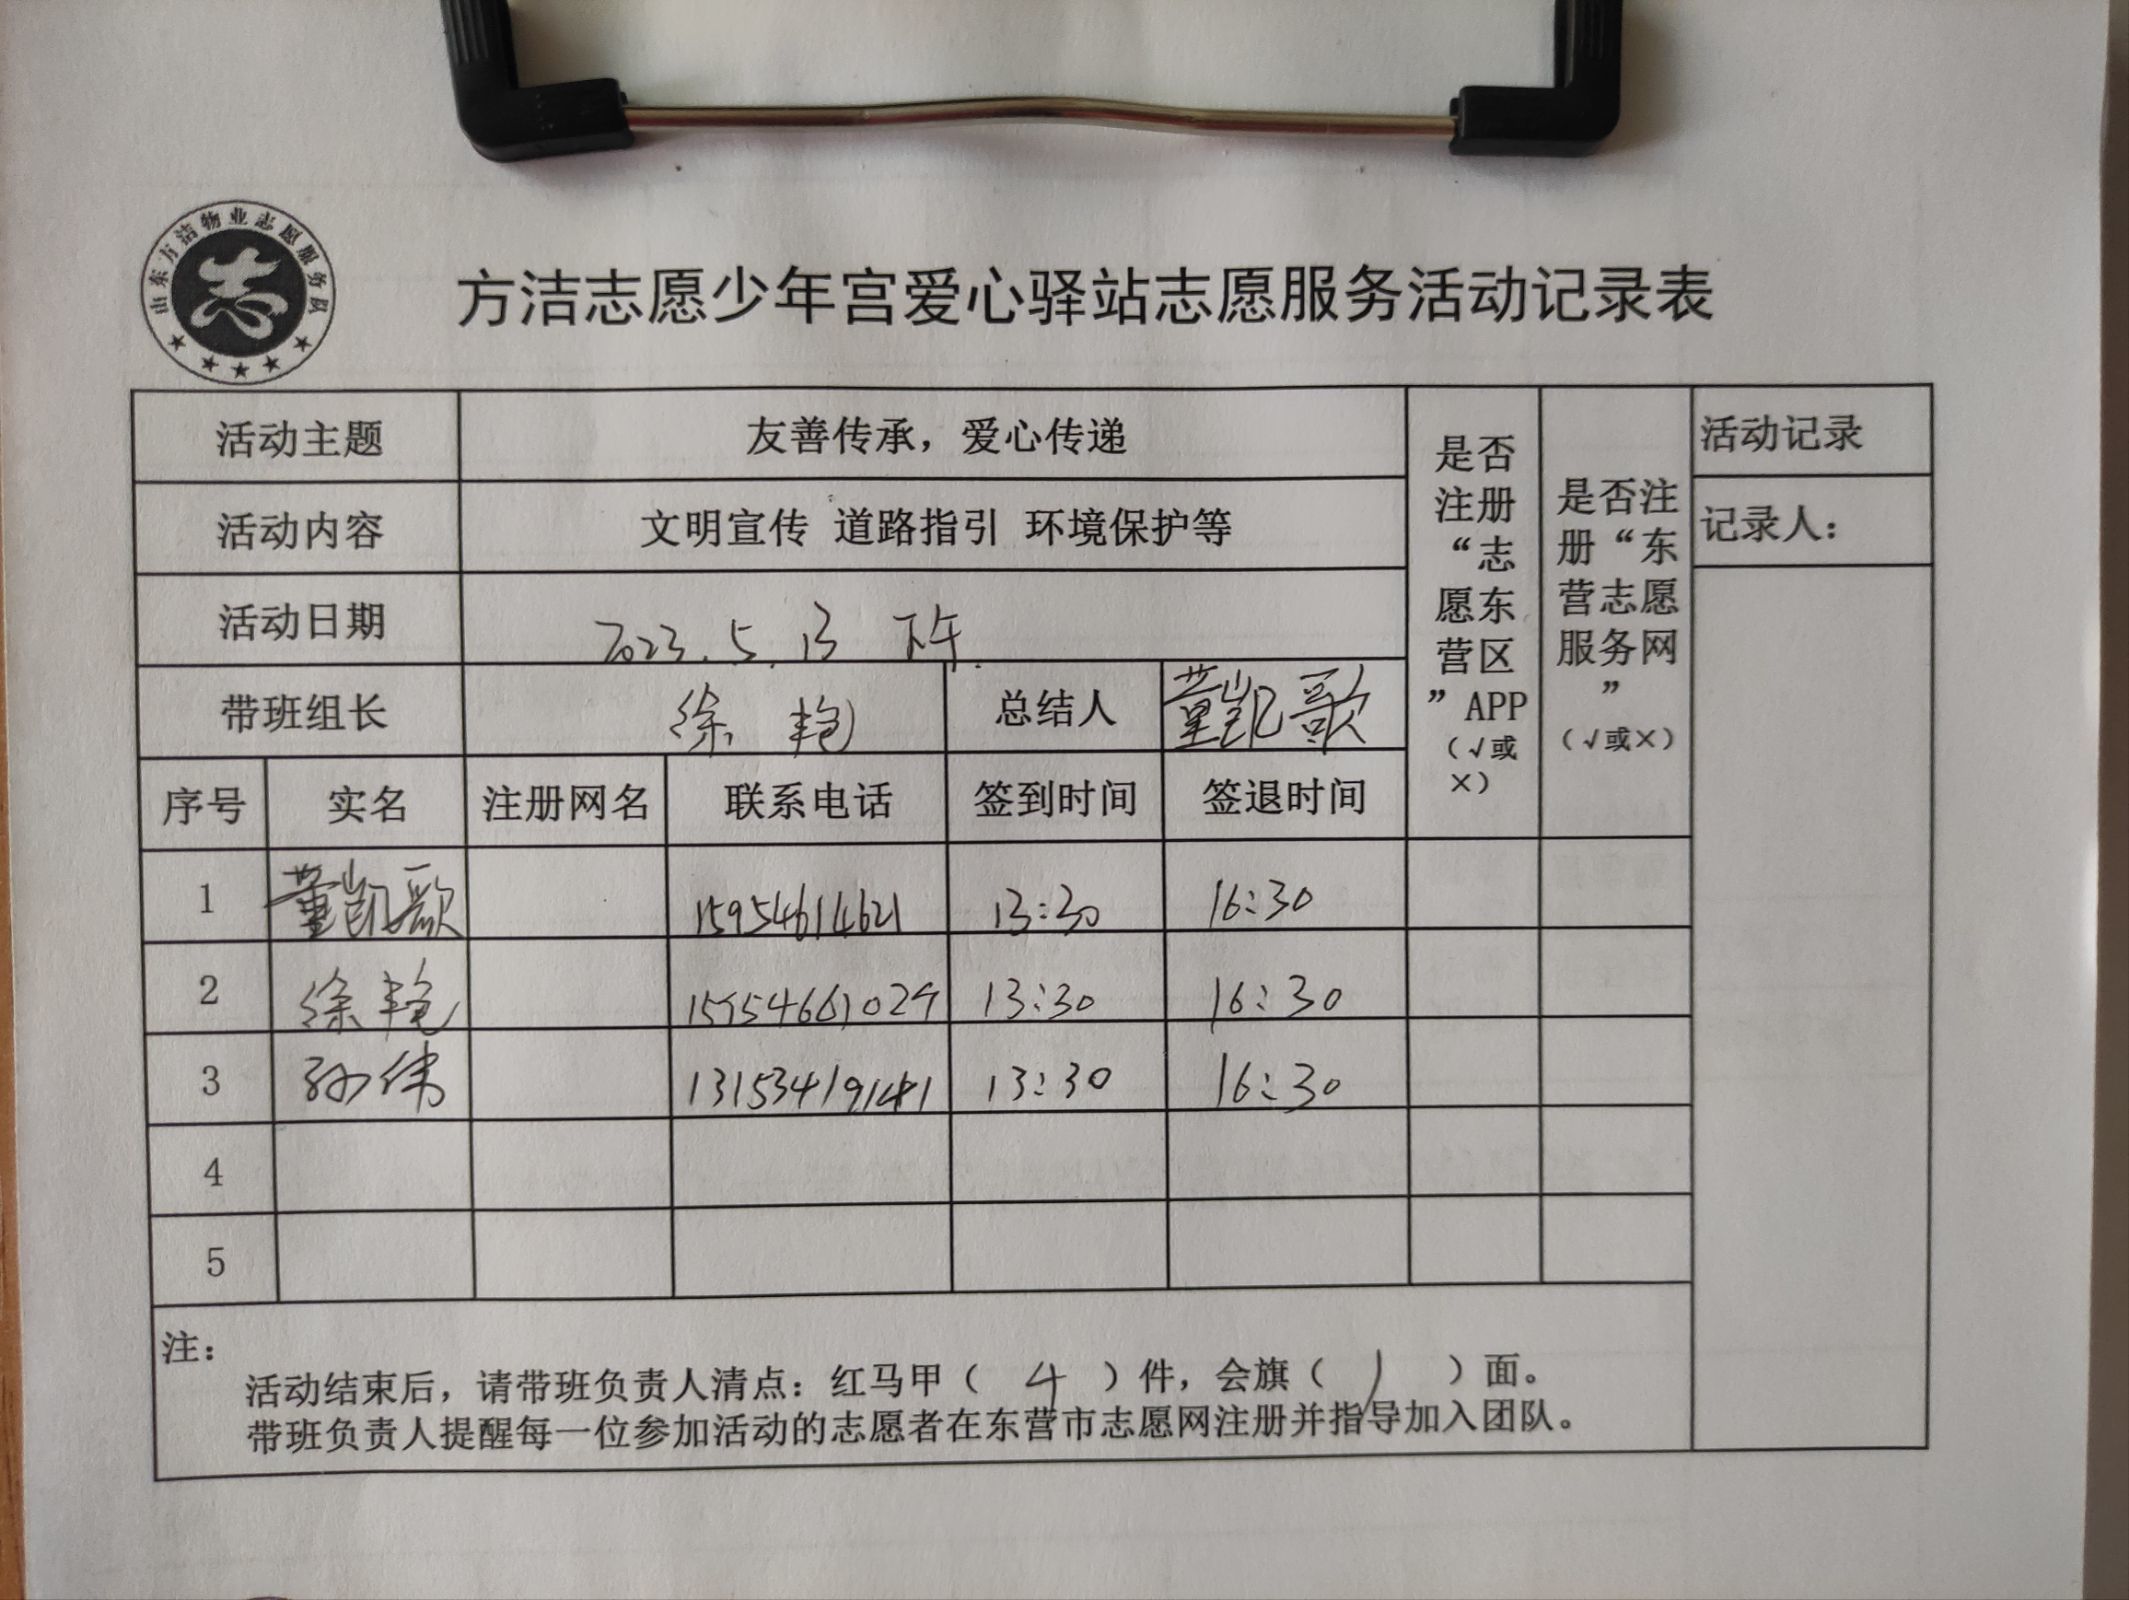 山东方洁物业志愿服务队
志
方洁志愿少年宫爱心驿站志愿服务活动记录表
活动主题 友善传承，爱心传递 是否注册“志愿东营区”APP（√或×） 是否注册“东营志愿服务网”（√或×） 活动记录
活动内容 文明宣传 道路指引 环境保护等 记录人：
活动日期 2023.5.13 下午
带班组长 徐艳 总结人 董凯歌
序号 实名 注册网名 联系电话 签到时间 签退时间
1 董凯歌 15954614621 13:30 16:30
2 徐艳 13:30 16:30
3 孙伟 13:30 16:30
4
5
注：
活动结束后，请带班负责人清点：红马甲（ 4 ）件，会旗（ 1 ）面。
带班负责人提醒每一位参加活动的志愿者在东营市志愿网注册并指导加入团队。